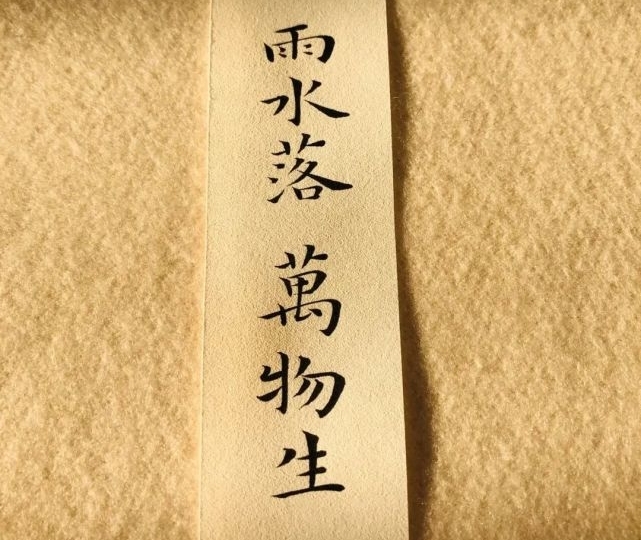 雨水落 萬物生